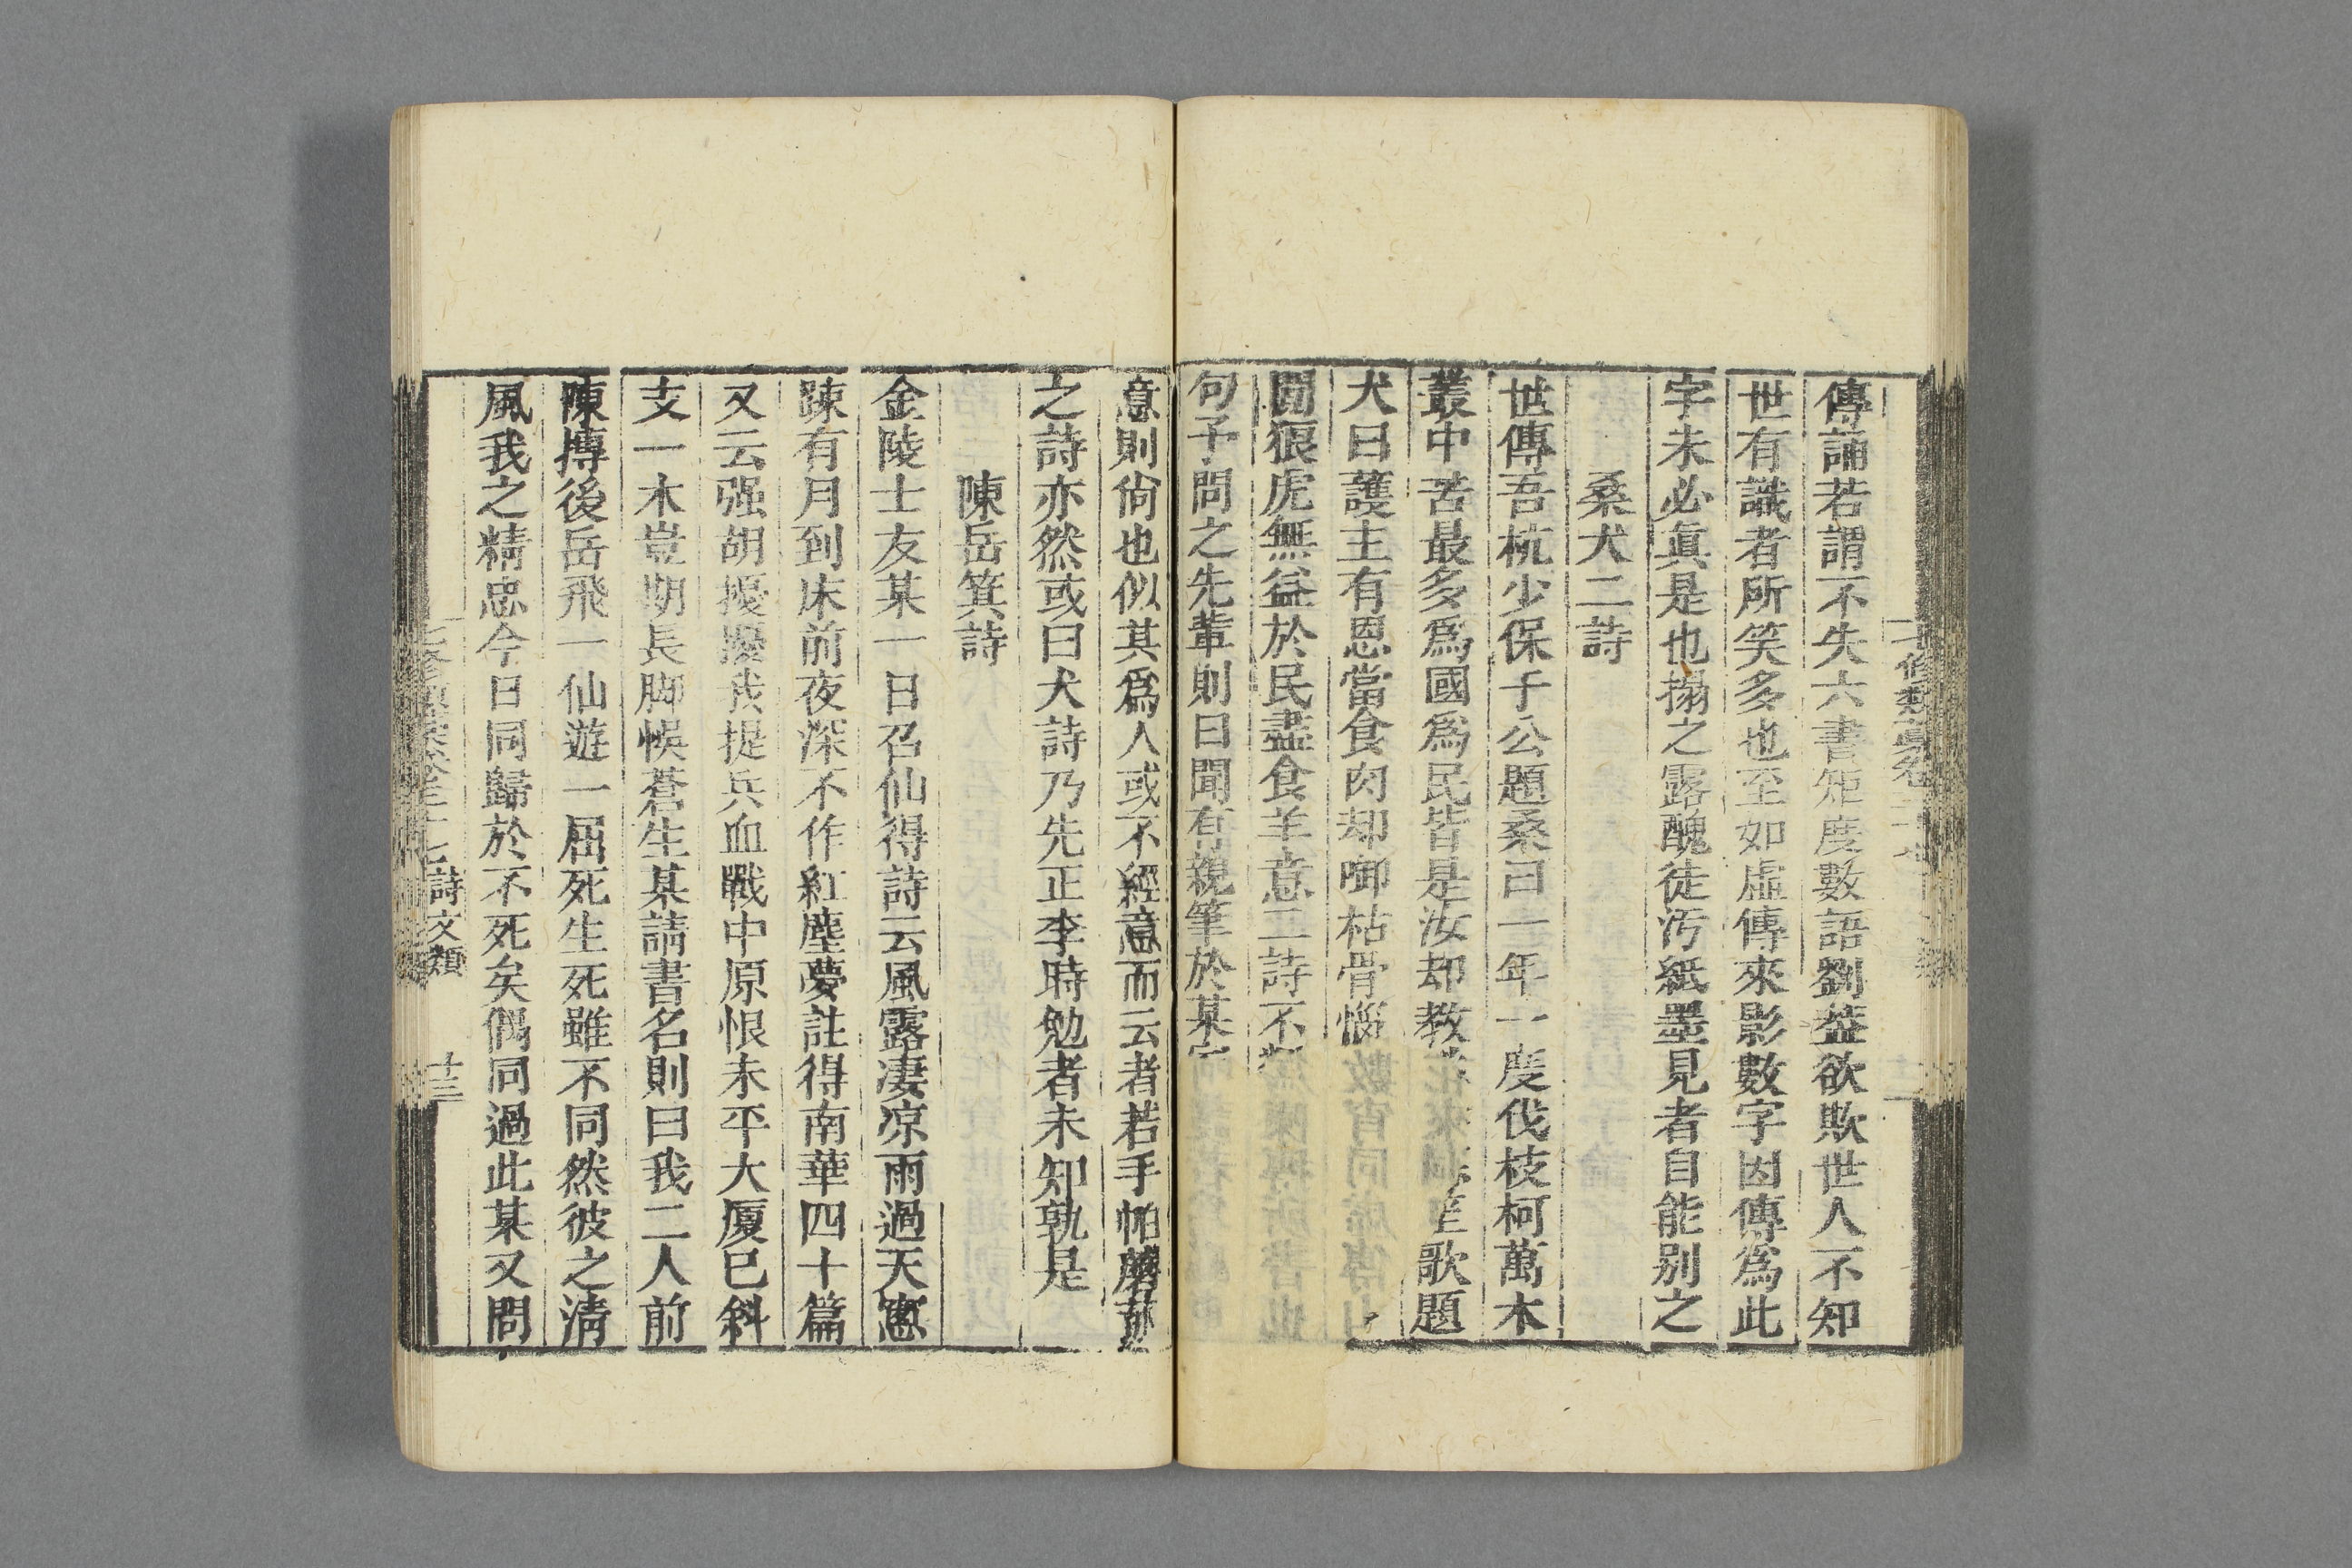 傳誦若謂不失六書矩度數語劉蓋欲欺世人不知
世有識者所笑多也至如虛傳來影數字因傳爲此
字未必眞是也搨之露醜徒汚紙墨見者自能别之
桑犬二詩
世傳吾杭少保于公題桑曰一年一度伐枝柯萬木
叢中苦最多爲國爲民皆是汝却教 歌題
犬曰護主有恩當食肉却啣枯骨惱
閒狠虎無益於民盡食羊意二詩不
句予問之先輩則曰聞有親筆於某
意則尙也似其爲人或不經意而云者若手帕蘑菇
之詩亦然或曰犬詩乃先正李時勉者未知孰是
陳岳箕詩
金陵士友某一日召仙得詩云風露凄凉雨過天窻
踈有月到床前夜深不作紅塵夢註得南華四十篇
又云强胡擾擾我提兵血戰中原恨未平大厦已斜
支一木豈期長脚悞蒼生某請書名則曰我二人前
陳摶後岳飛一仙遊一屈死生死雖不同然彼之淸
風我之精忠今日同歸於不死矣偶同過此某又問
詩文類
十三